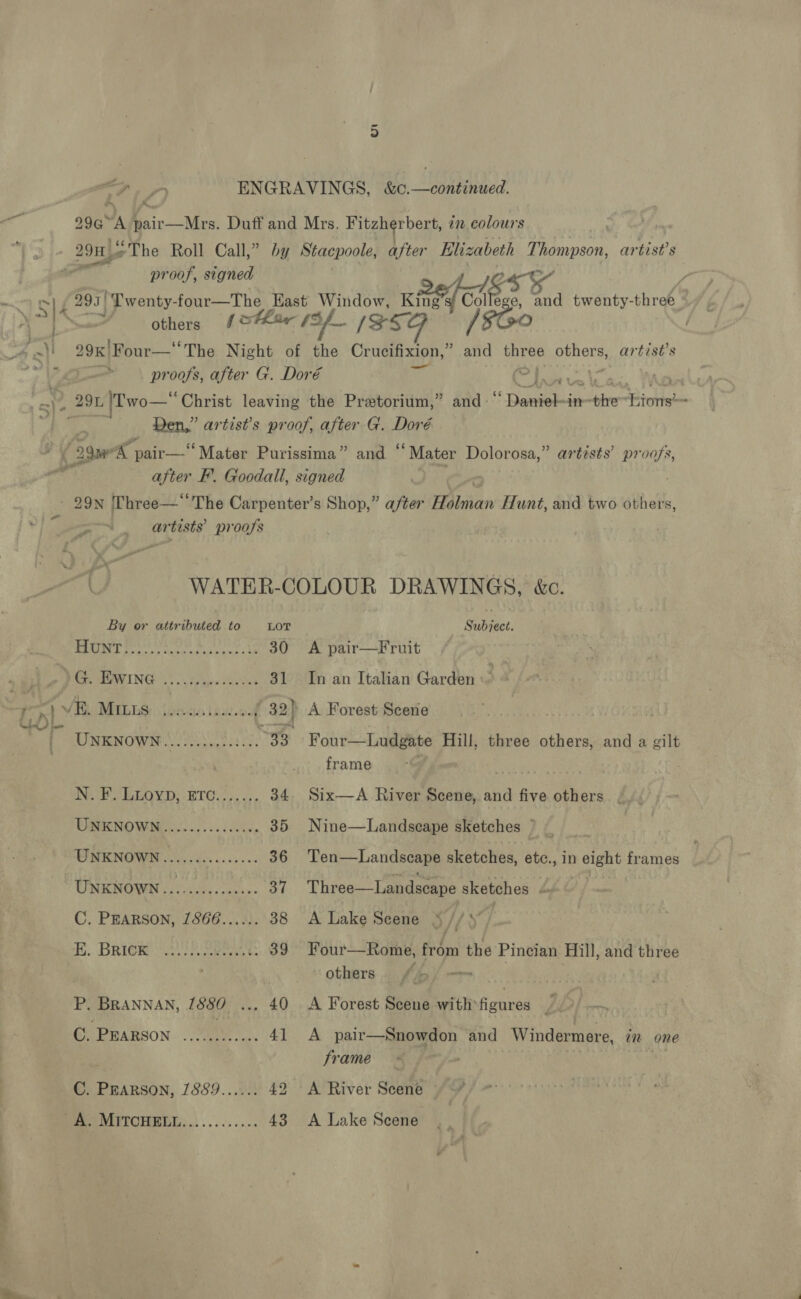 5
ENGRAVINGS, &c.—continued.
29G A pair—Mrs. Duff and Mrs. Fitzherbert, in colours
29H “The Roll Call,” by Stacpoole, after Elizabeth Thompson, artist's
proof, signed
29J Twenty-four—The East Window, King's College, and twenty-three
others
1859 1860
29K Four—“The Night of the Crucifixion,” and three others, artist's
proofs, after G. Doré
29L Two—“Christ leaving the Prætorium,” and “Daniel in the Lions'
Den,” artist's proof, after G. Doré
29M A pair—“Mater Purissima” and “Mater Dolorosa,” artists' proofs,
after F. Goodall, signed
29N Three—“The Carpenter's Shop,” after Holman Hunt, and two others,
artists' proofs
WATER-COLOUR DRAWINGS, &c.
By or attributed to LOT Subject.
HUNT............ 30 A pair—Fruit
G. EWING ............ 31 In an Italian Garden
E. MILLS ............ 32 A Forest Scene
UNKNOWN............ 33 Four—Ludgate Hill, three others, and a gilt
frame
N. F. LLOYD, ETC....... 34 Six—A River Scene, and five others
UNKNOWN............ 35 Nine—Landscape sketches
UNKNOWN............ 36 Ten—Landscape sketches, etc., in eight frames
UNKNOWN............ 37 Three—Landscape sketches
C. PEARSON, 1866...... 38 A Lake Scene
E. BRICK ............ 39 Four—Rome, from the Pincian Hill, and three
others
P. BRANNAN, 1880 ... 40 A Forest Scene with figures
C. PEARSON ............ 41 A pair—Snowdon and Windermere, in one
frame
C. PEARSON, 1889...... 42 A River Scene
A. MITCHELL............ 43 A Lake Scene